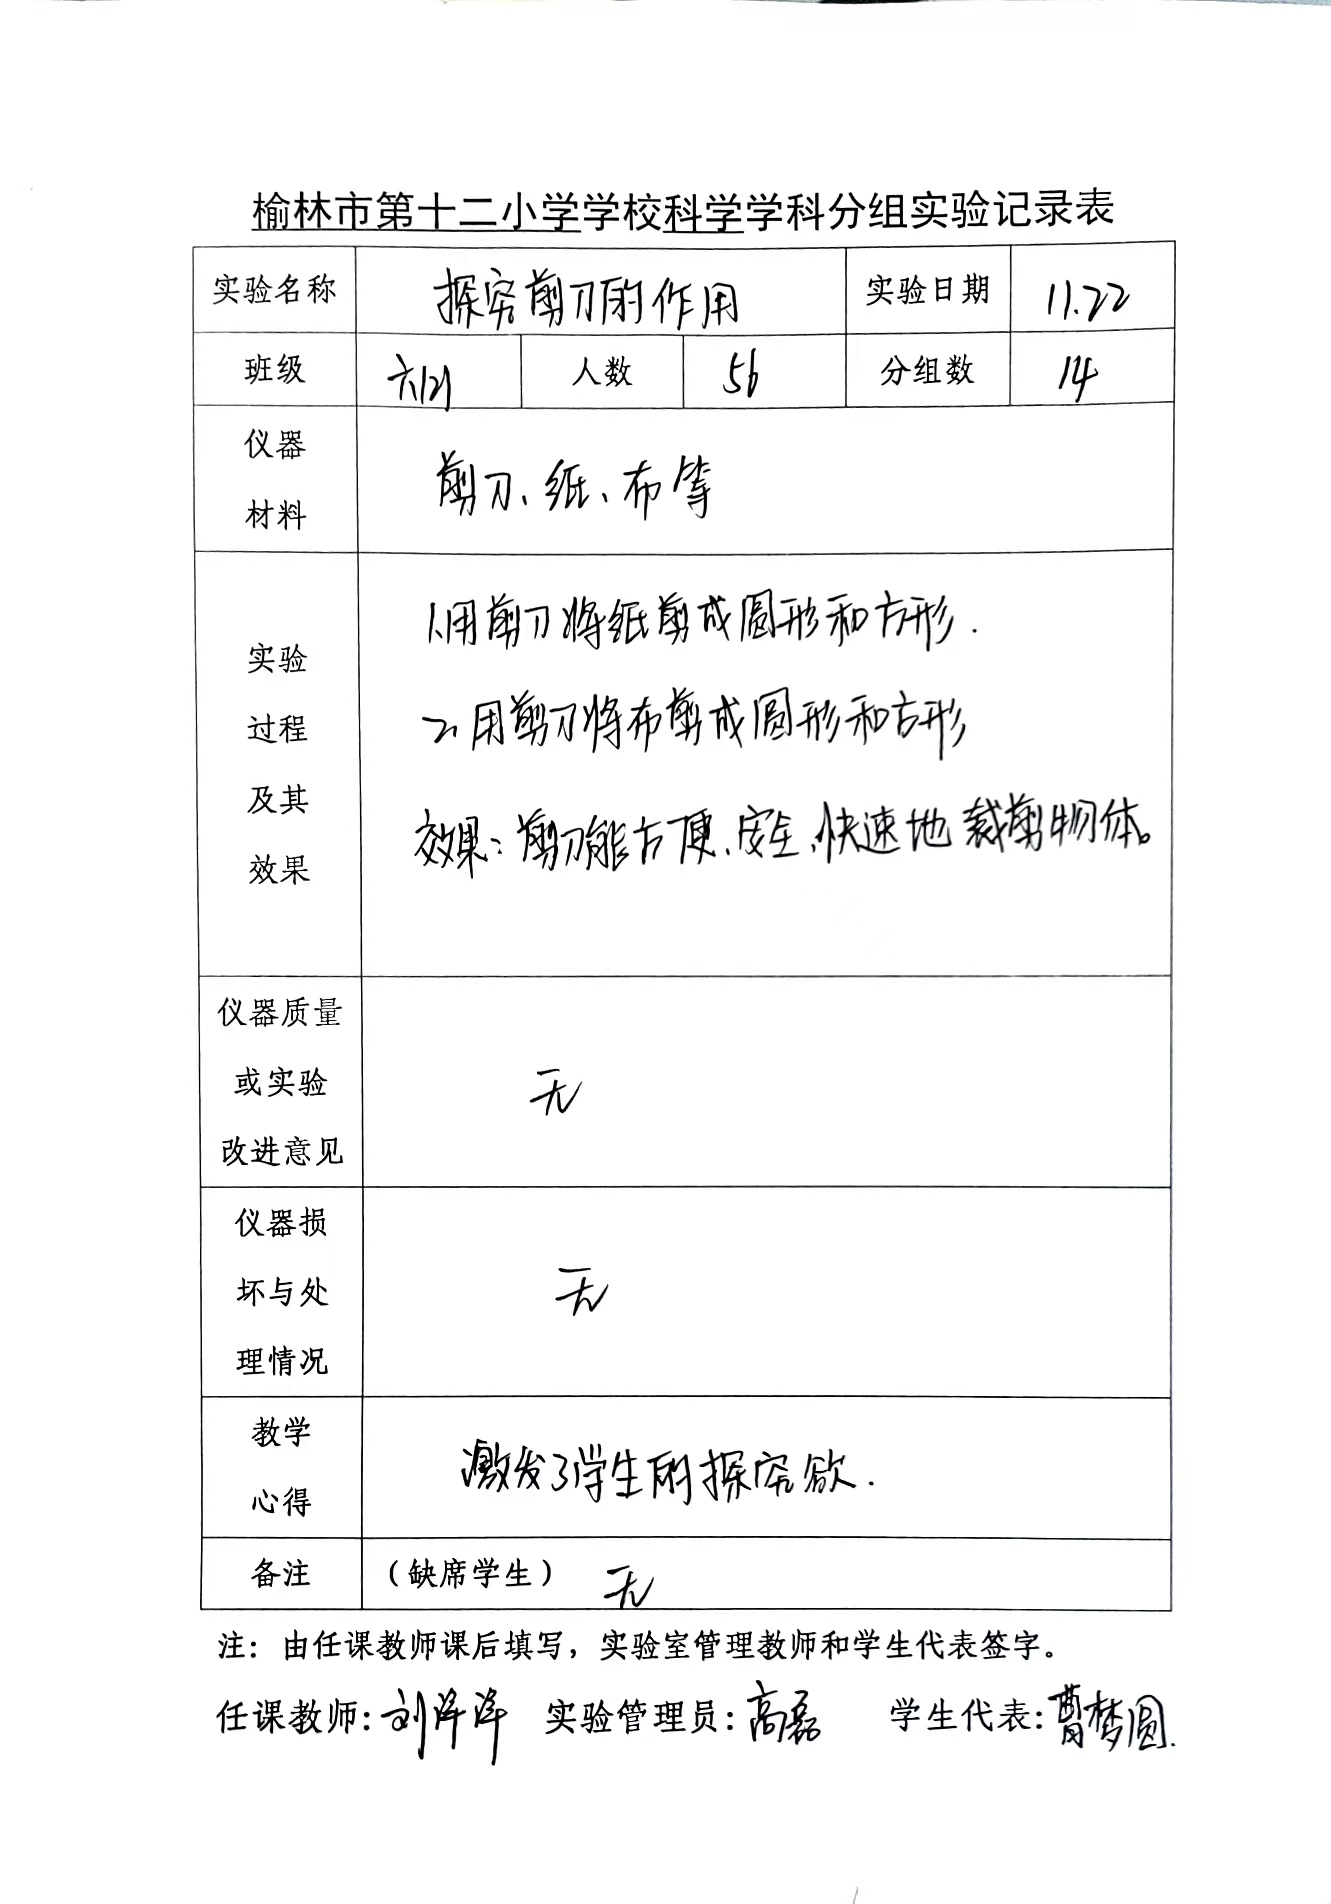 榆林市第十二小学学校科学学科分组实验记录表
实验名称 探究剪刀的作用 实验日期 11.22
班级 六(2) 人数 56 分组数 14
仪器
材料
剪刀、纸、布等
实验
过程
及其
效果
1.用剪刀将纸剪成圆形和方形.
2.用剪刀将布剪成圆形和方形
效果:剪刀能方便、安全、快速地裁剪物体。
仪器质量
或实验
改进意见
无
仪器损
坏与处
理情况
无
教学
心得
激发了学生的探究欲.
备注 (缺席学生) 无
注：由任课教师课后填写，实验室管理教师和学生代表签字。
任课教师:刘洋洋 实验管理员:高磊 学生代表:曹梦圆.